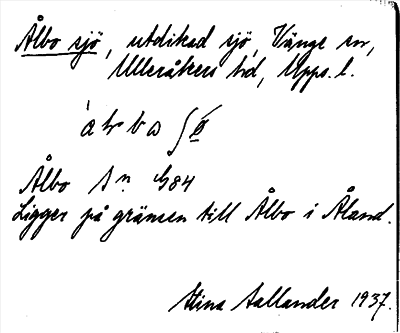 Ålbo sjö, utdikad sjö, Vänge sn,
Ulleråkers hd, Upps. l.
Ålbo 1 n. 484
Ligger på gränsen till Ålbo i Åland.
Stina Sallander 1937.